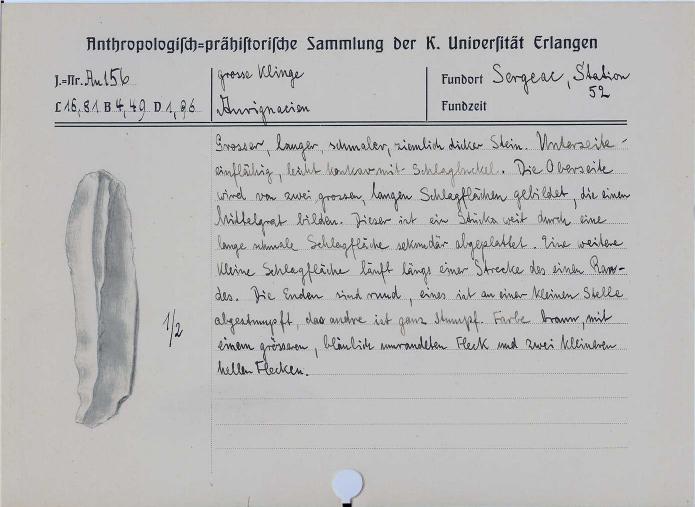 Anthropologisch=prähistorische Sammlung der K. Universität Erlangen
J.=Nr. Au 156
L 16,81 B 4,49 D 1,96
grosse Klinge
Aurignacien
Fundort Sergeac, Station
52
Fundzeit
Grosser, langer, schmaler, ziemlich dicker Stein. Unterseite-
einflächig, leicht konkav mit Schlagbuckel. Die Oberseite
wird von zwei grossen, langen Schlagflächen gebildet, die einen
Mittelgrat bilden. Dieser ist ein Stück weit durch eine
lange schmale Schlagfläche sekundär abgeplattet. Eine weitere
kleine Schlagfläche läuft längs einer Strecke des einen Ran-
des. Die Enden sind rund, eines ist an einer kleinen Stelle
abgestumpft, das andre ist ganz stumpf. Farbe braun, mit
einem grösseren, bläulich umrandeten Fleck und zwei kleineren
hellen Flecken.
1/2